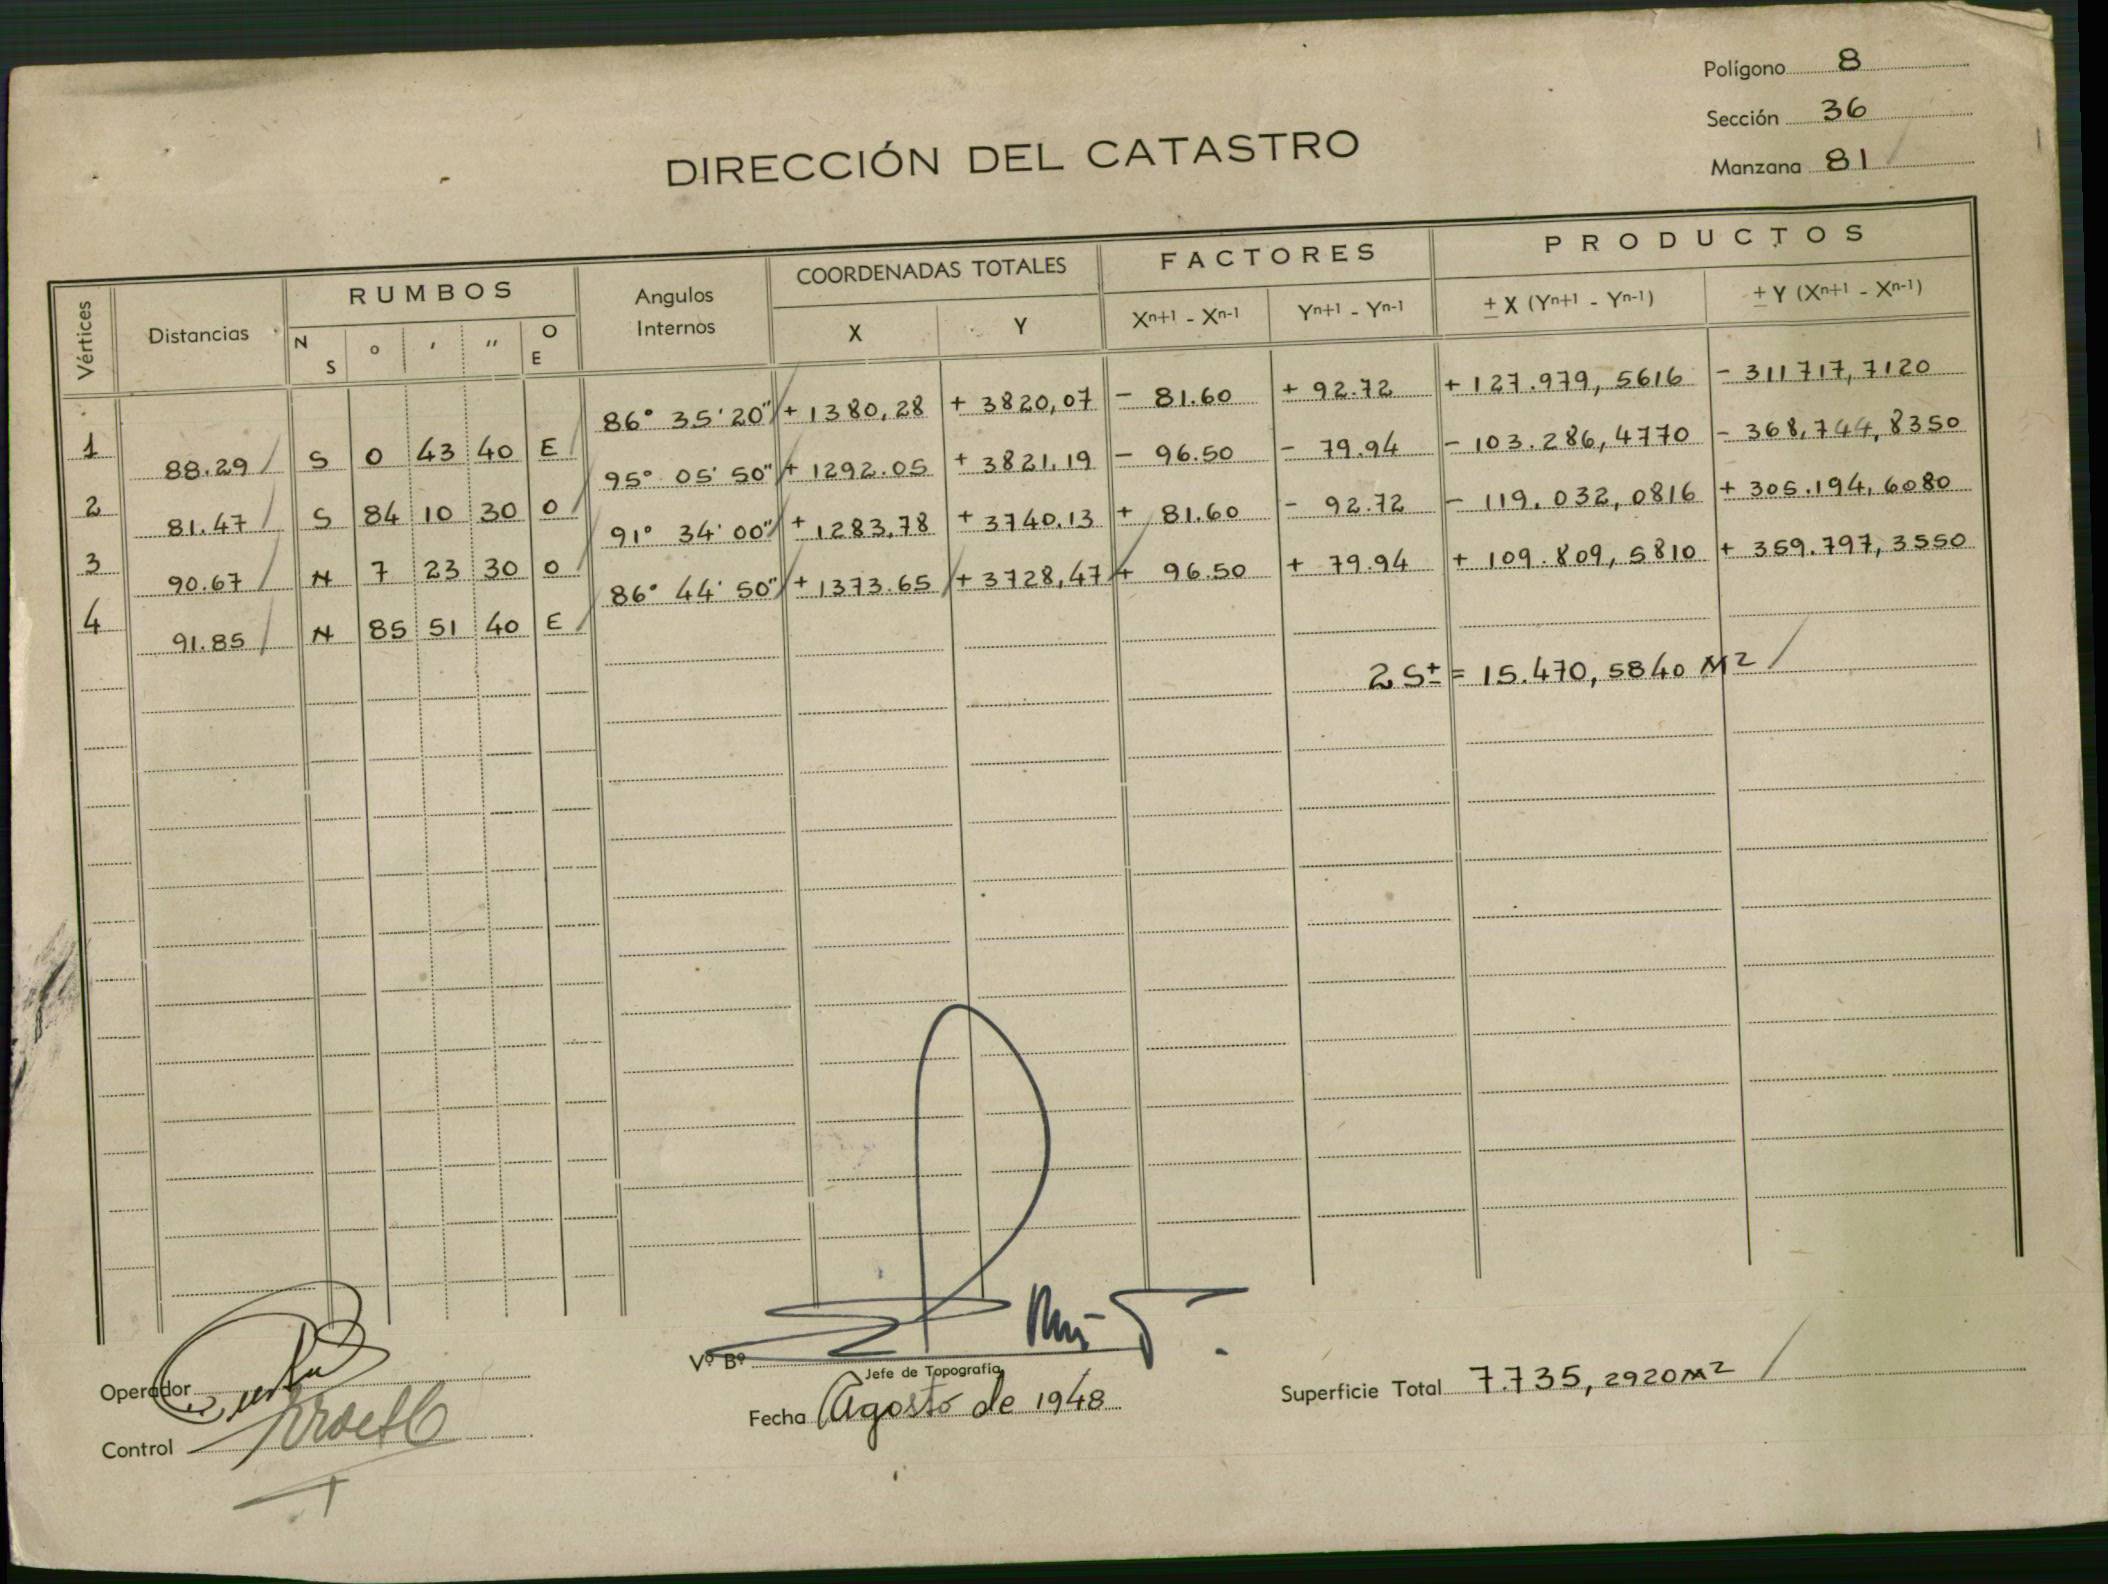 Polígono 8
Sección 36
Manzana 81
DIRECCIÓN DEL CATASTRO
Vértices Distancias RUMBOS Angulos Internos COORDENADAS TOTALES FACTORES PRODUCTOS
N S o ' '' O E X Y Xn+1 - Xn-1 Yn+1 - Yn-1 ± X (Yn+1 - Yn-1) ± Y (Xn+1 - Xn-1)
86° 35' 20" + 1380,28 + 3820,07 - 81.60 + 92.72 + 127.979, 5616 - 311717, 7120
1 88.29 S 0 43 40 E
95° 05' 50" + 1292.05 + 3821,19 - 96.50 - 79.94 - 103.286,4770 - 368,744,8350
2 81.47 S 84 10 30 O
91° 34' 00" + 1283,78 + 3740.13 + 81.60 - 92.72 - 119,032,0816 + 305.194,6080
3 90.67 N 7 23 30 O
86° 44' 50" + 1373.65 + 3728,47 + 96.50 + 79.94 + 109.809,5810 + 359.797,3550
4 91.85 N 85 51 40 E
2 S± = 15.470,5840 M2
Operador
Control
Vº Bº
Jefe de Topografía
Fecha Agosto de 1948
Superficie Total 7.735,2920 M2